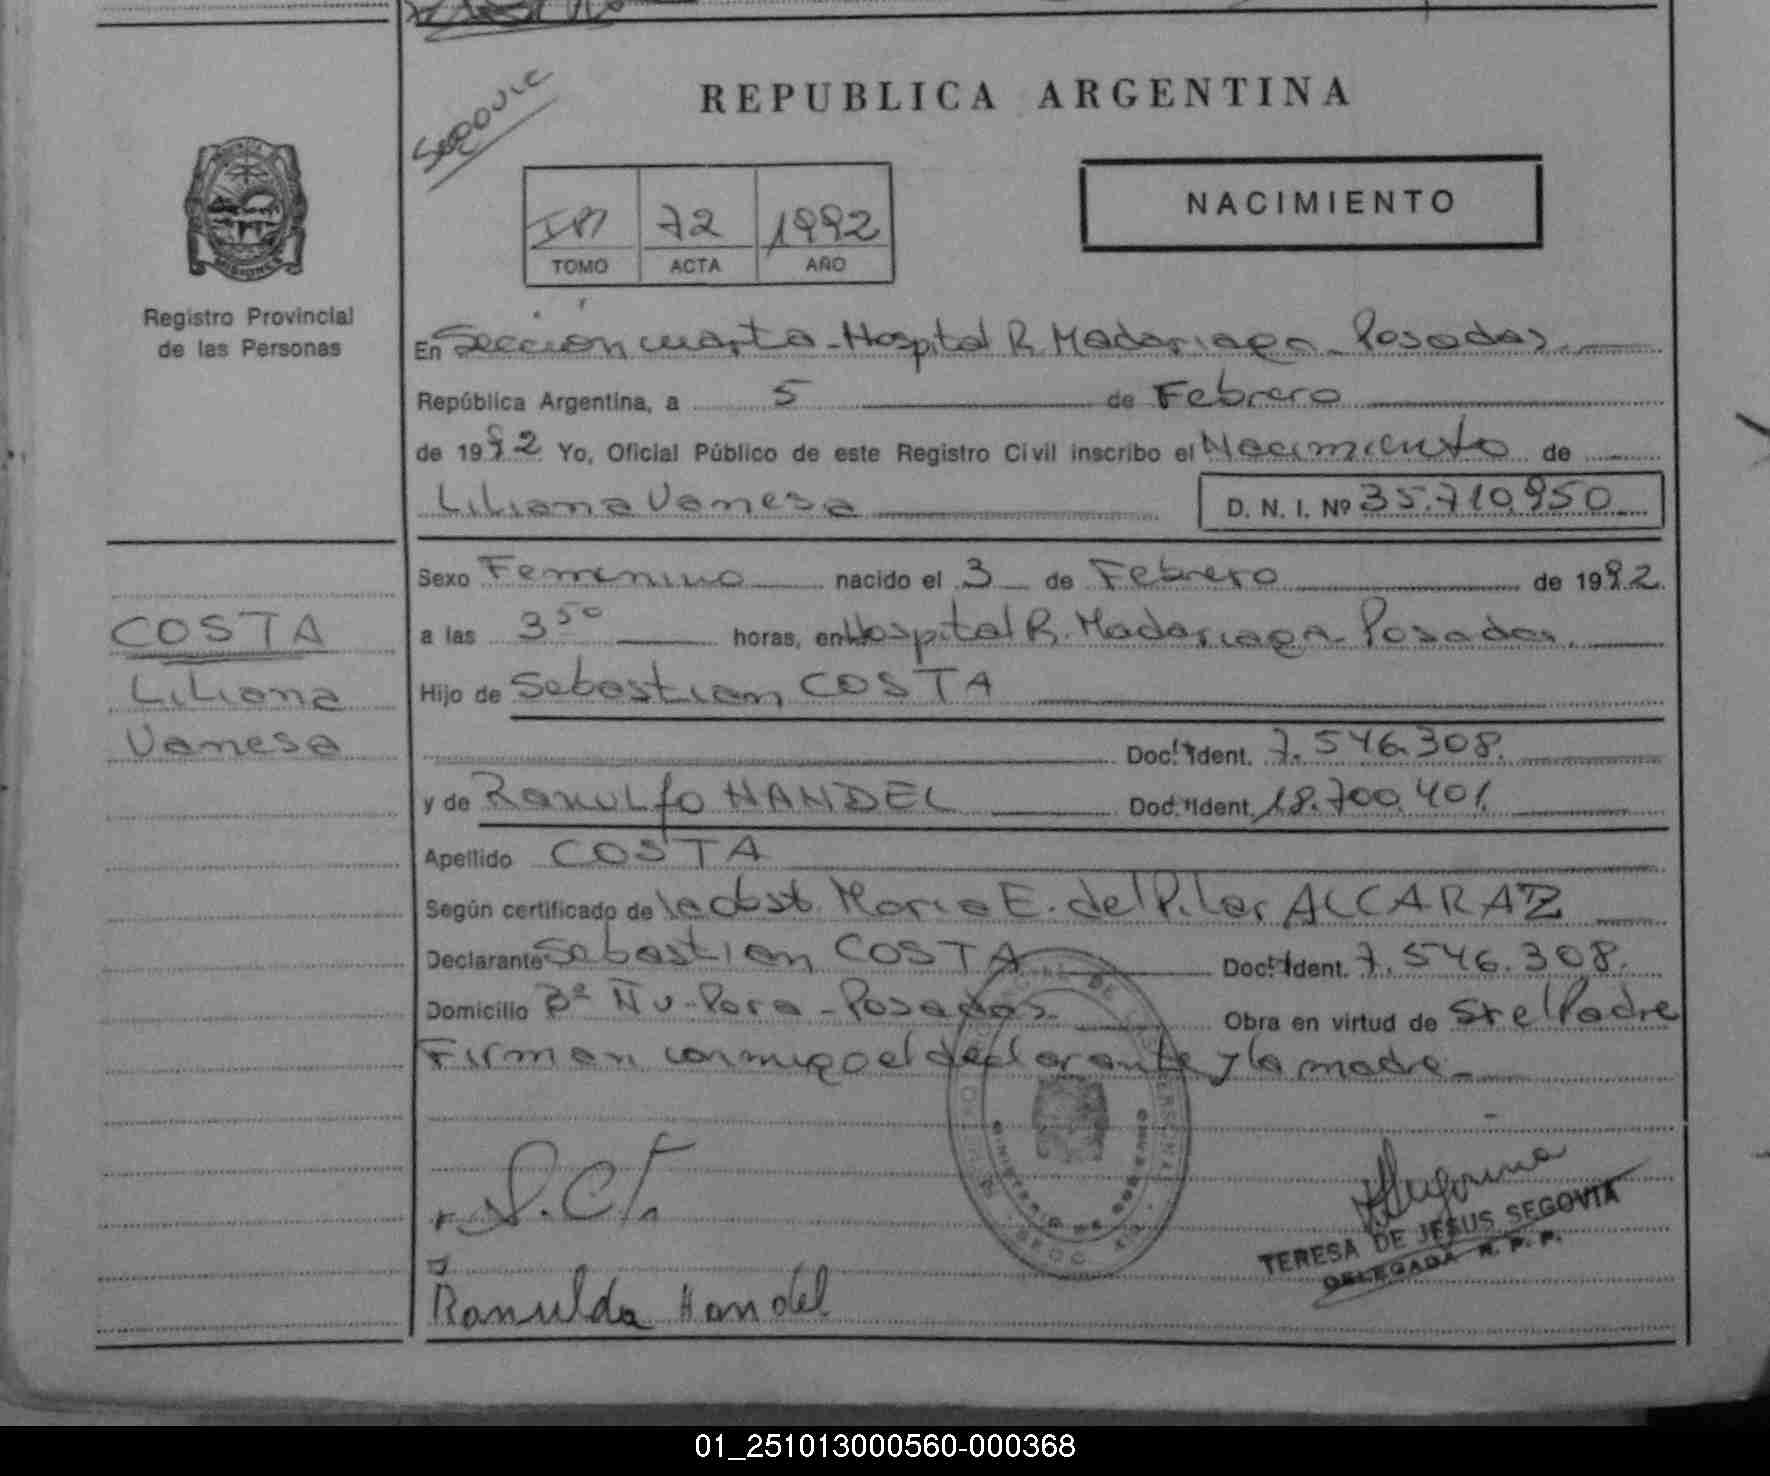 REPUBLICA ARGENTINA
NACIMIENTO
72 1992
TOMO ACTA AÑO
Registro Provincial
de las Personas
En Sección cuarta - Hospital R. Madariaga - Posadas
República Argentina, a 5 de Febrero
de 1992 Yo, Oficial Público de este Registro Civil inscribo el Nacimiento de
Liliana Vanesa D. N. I. Nº 35.710.950
Sexo Femenino nacido el 3 de Febrero de 1992.
a las 3 50 horas, en Hospital R. Madariaga - Posadas.
Hijo de Sebastian COSTA
Doc. Ident. 7.546.308.
y de Ranulfo HANDEL Doc. Ident. 18.700.401.
Apellido COSTA
Según certificado de la obst. Maria E. del Pilar ALCARAZ
Declarante Sebastian COSTA Doc. Ident. 7.546.308.
Domicilio Bº Ñu-Pora - Posadas Obra en virtud de Ser el Padre
Firman conmigo el declarante y la madre.-
COSTA
Liliana
Vanesa
Ranulda Handel
TERESA DE JESUS SEGOVIA
DELEGADA R. P. P.
01_251013000560-000368